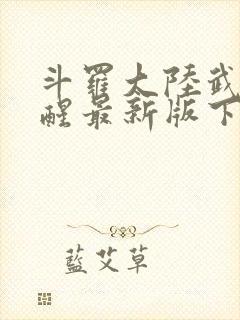 斗羅大陸武
醒最新版下
藍艾草